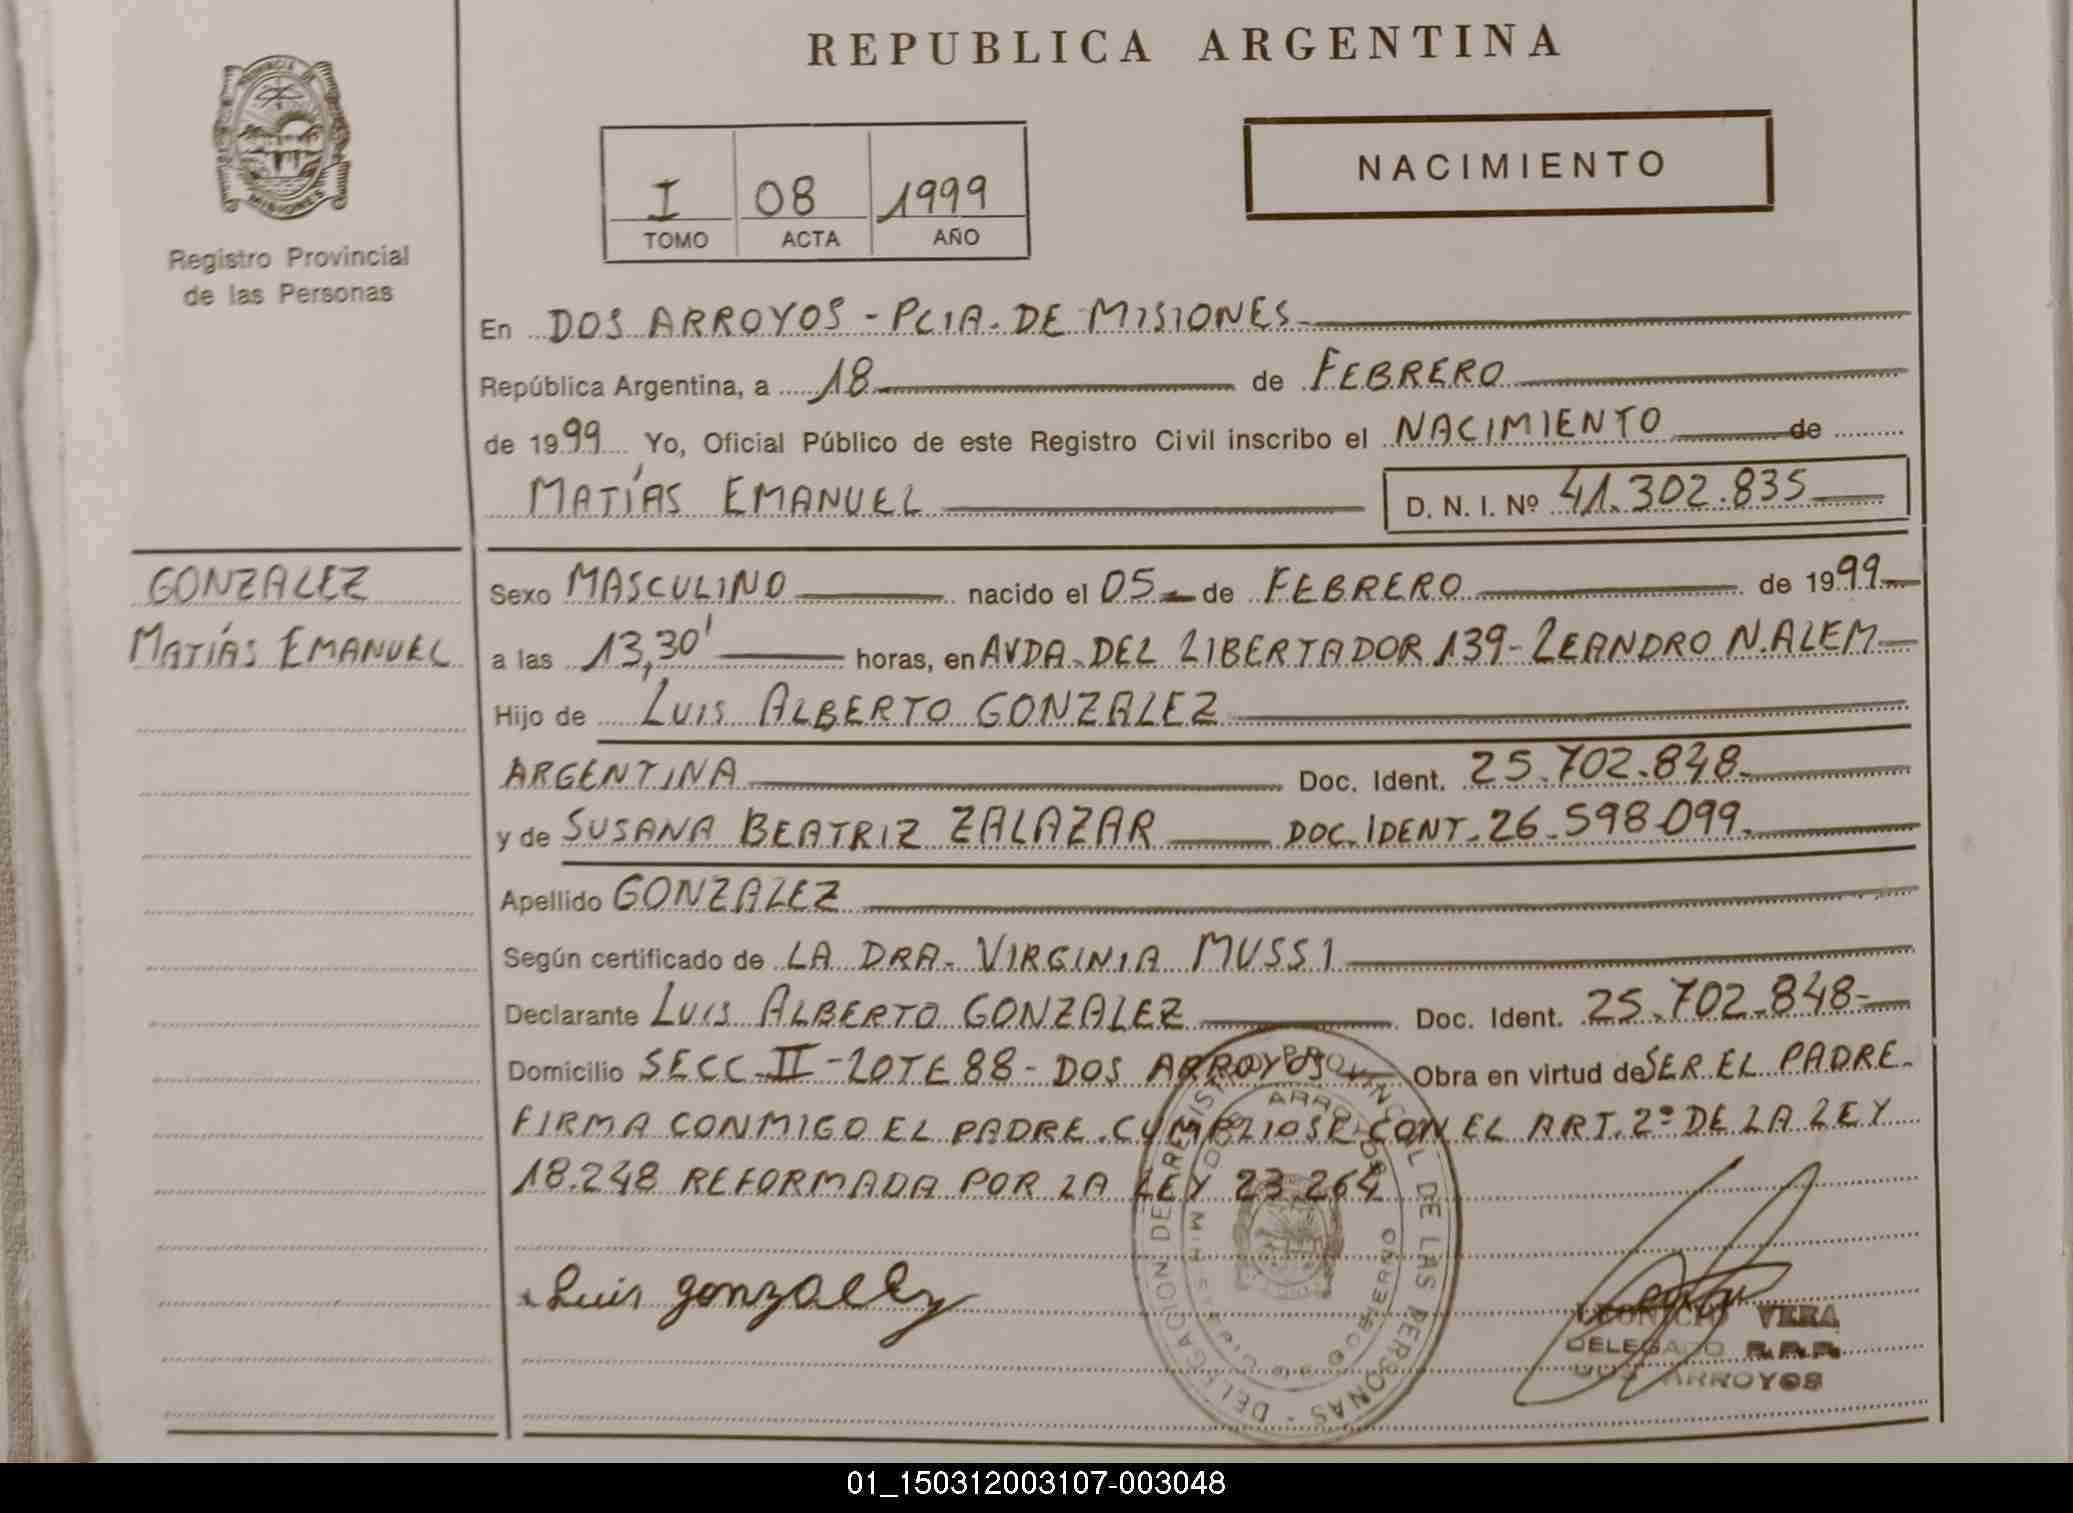 REPUBLICA ARGENTINA
PROVINCIA DE
MISIONES
Registro Provincial
de las Personas
I 08 1999
TOMO ACTA AÑO
NACIMIENTO
En DOS ARROYOS - PCIA. DE MISIONES
República Argentina, a 18 de FEBRERO
de 1999 Yo, Oficial Público de este Registro Civil inscribo el NACIMIENTO de
MATÍAS EMANUEL D. N. I. Nº 41.302.835
GONZALEZ
MATÍAS EMANUEL
Sexo MASCULINO nacido el 05 de FEBRERO de 1999
a las 13,30' horas, en AVDA. DEL LIBERTADOR 139 - LEANDRO N. ALEM
Hijo de LUIS ALBERTO GONZALEZ
ARGENTINA Doc. Ident. 25.702.848
y de SUSANA BEATRIZ ZALAZAR DOC. IDENT. 26.598.099
Apellido GONZALEZ
Según certificado de LA DRA. VIRGINIA MUSSI
Declarante LUIS ALBERTO GONZALEZ Doc. Ident. 25.702.848
Domicilio SECC. II - LOTE 88 - DOS ARROYOS Obra en virtud de SER EL PADRE.
FIRMA CONMIGO EL PADRE. CUMPLIOSE CON EL ART. 2º DE LA LEY
18.248 REFORMADA POR LA LEY 23.264
Luis Gonzalez
VERA
DELEGADO R.P.P.
DOS ARROYOS
01_150312003107-003048